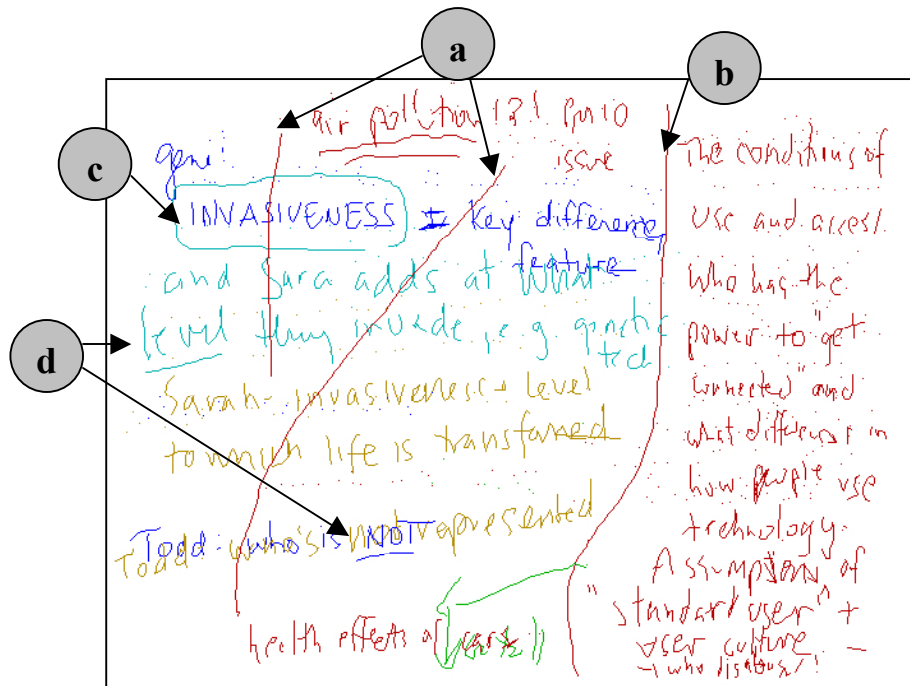 a
b
c
d
air pollution
issue
INVASIVENESS = key difference
feature
and Sara adds at what
level they invade, e.g. genetic
tech
Sarah - invasiveness + level
to which life is transformed
Todd: who is NOT
Todd: who's not represented
health effects of cars
The conditions of
use and access.
Who has the
power to "get
connected" and
what differences in
how people use
technology.
Assumptions of
"standard user" +
user culture -